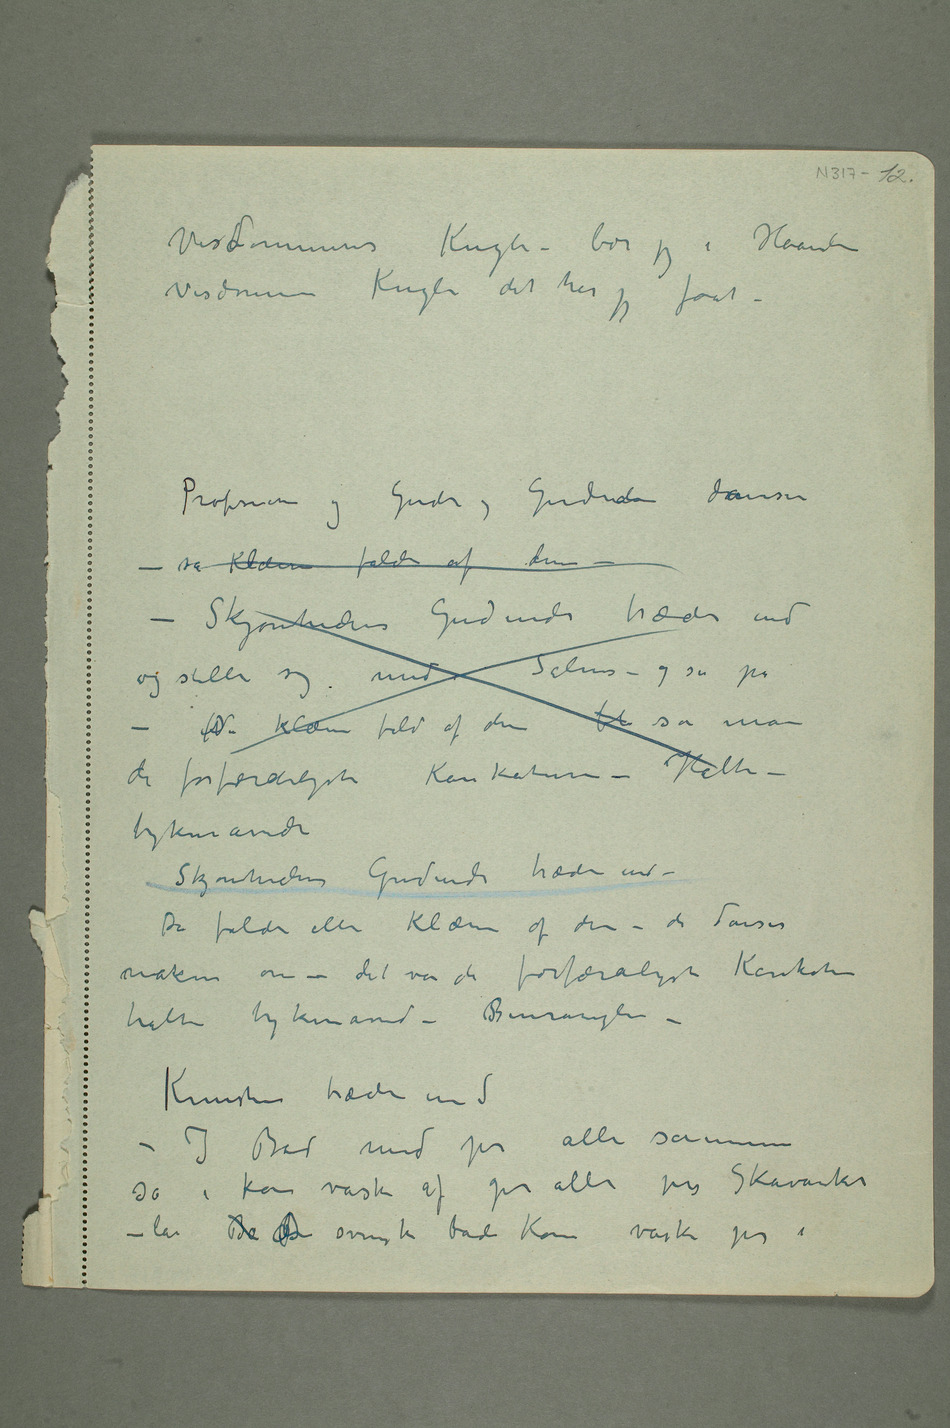 N317- 12.
Visdommens Kugle – bær jeg i Haanden
Visdommen Kugle det har jeg faat –
Professoren og Guder og Gudinder danser
– så klæderne falder af dem –
– Skjønhedens Gudinde træder ind
og stiller sig midt Salens – og ser på
– Da klæderne fald af dem så man
de forfærdeligste Karikaturer – Halte –
tykmavede
Skjønhedens Gudinde træder ind –
Da falder alle Klæderne af dem – de danser
nakne om – det var de forfærdeligste Karikaturer
halte tykmaved – Benrangler –
Kunsten træder ind
– I Bad med jer alle sammen
så i kan vaske af jer alle jeres Skavanker
– lar svenske bade Kone vaske jer i